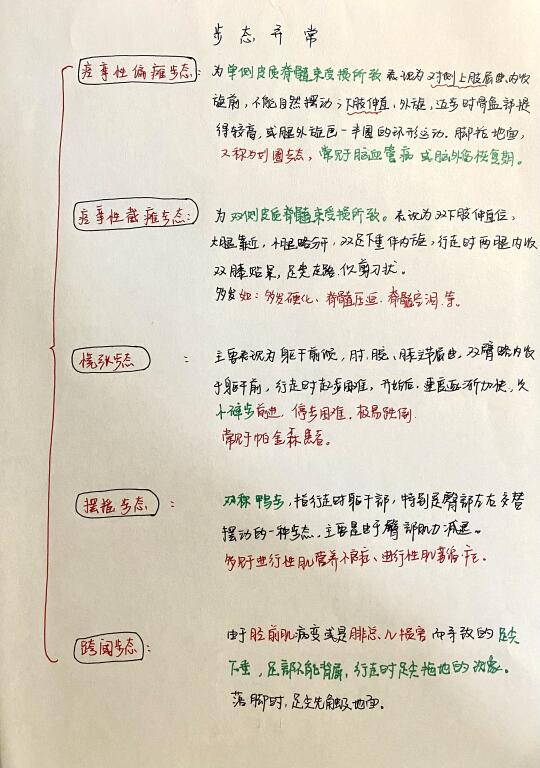 步态异常
痉挛性偏瘫步态：为单侧皮质脊髓束受损所致 表现为对侧上肢屈曲、内收
旋前，不能自然摆动；下肢伸直、外旋，迈步时骨盆部提
得较高，或腿外旋画一半圆的环形运动，脚拖地面，
又称为划圈步态，常见于脑血管病或脑外伤恢复期。
痉挛性截瘫步态：为双侧皮质脊髓束受损所致。表现为双下肢伸直位，
大腿靠近，小腿略分开，双足下垂伴内旋，行走时两腿内收
双膝贴紧，足尖走路，似剪刀状。
多发如：多发硬化、脊髓压迫、脊髓空洞等。
慌张步态：主要表现为躯干前倾，肘、腕、膝关节屈曲，双臂略内收
于躯干前，行走时起步困难，开始后，速度逐渐加快，欠
小碎步前进，停步困难，极易跌倒
常见于帕金森患者。
摇摆步态：又称鸭步，指行走时躯干部，特别是臀部左右交替
摆动的一种步态，主要是由于臀部肌力减退。
多见于进行性肌营养不良症、进行性肌萎缩症。
跨阈步态：由于胫前肌病变或是腓总N损害而导致的足尖
下垂，足部不能背屈，行走时足尖拖地的现象。
落脚时，足尖先触及地面。